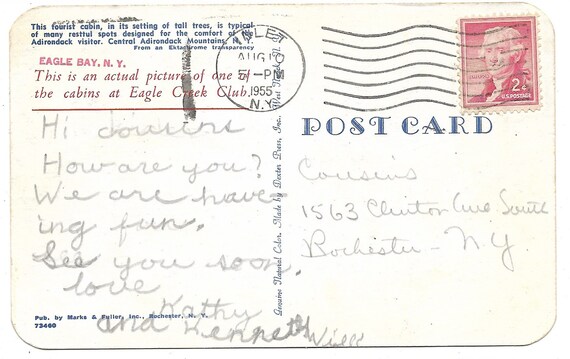 This tourist cabin, in its setting of tall trees, is typical
of many restful spots designed for the comfort of the
Adirondack visitor. Central Adirondack Mountains, N.Y.
From an Ektachrome transparency
EAGLE BAY, N. Y.
This is an actual picture of one of
the cabins at Eagle Creek Club.
Hi cousins
How are you?
We are have
ing fun.
See you soon.
love
Kathy
and Kenneth
Pub. by Marks & Fuller, Inc., Rochester, N. Y.
73460
Genuine Natural Color. Made by Dexter Press, Inc., West Nyack, N. Y.
INLET
AUG 10
5 - PM
1955
N.Y.
2¢
U.S. POSTAGE
POST CARD
Cousins
1563 Clinton Ave South
Rochester - N.Y.